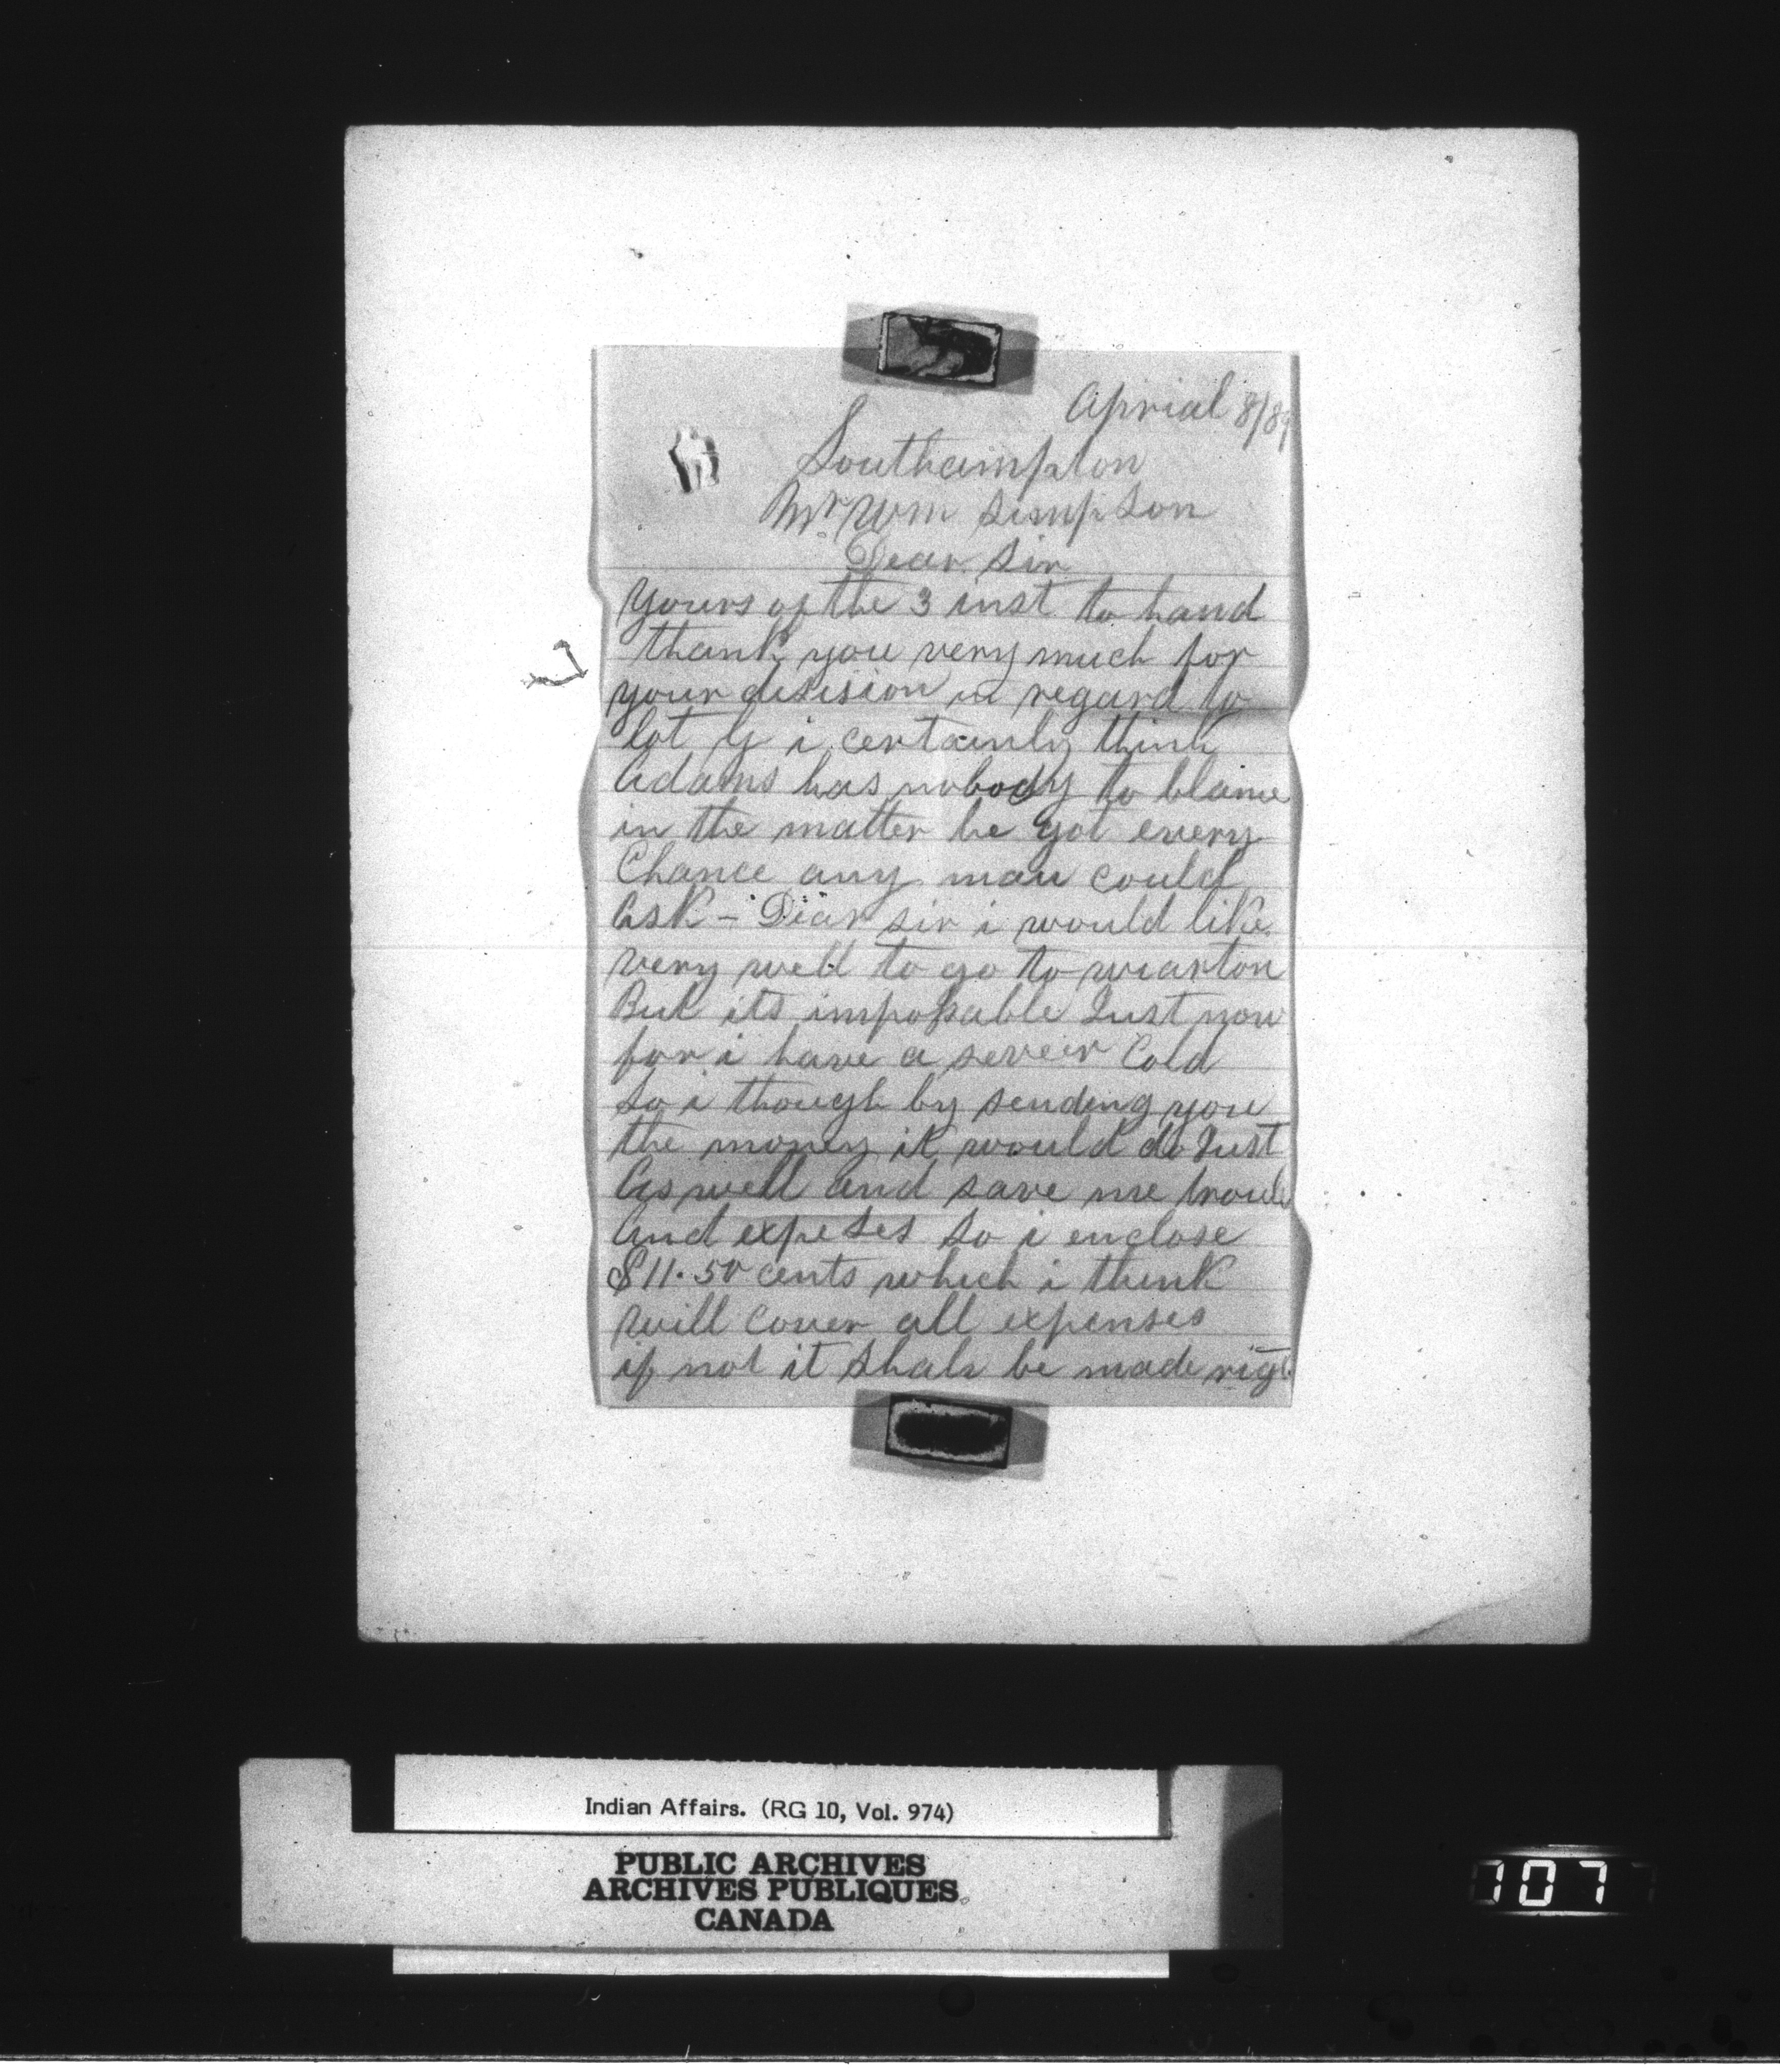 Aprial 8/89
Southampton
Mr Wm Simpson
Dear Sir
yours of the 3 inst to hand
thank you very much for
your desision in regard to
lot i certainly think
Adams has nobody to blame
in the matter he got every
Chance any man could
Ask - Dear sir i would like
very well to go to wiarton
But its impossable Just now
for i have a seveir Cold
So i though by sending you
the money it would do Just
As well and save me
And expeses So i enclose
$11.50 cents which i think
will cover all expenses
if not it shala be made
Indian Affairs. (RG 10, Vol. 974)
PUBLIC ARCHIVES
ARCHIVES PUBLIQUES
CANADA
707